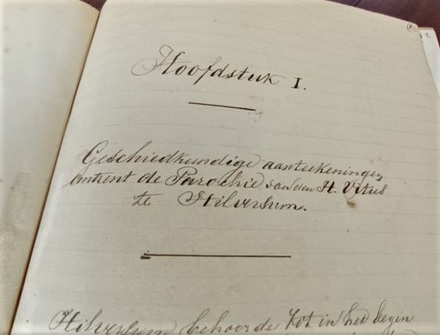 Hoofdstuk I.
Geschiedkundige aanteekeningen
omtrent de Parochie van den H. Vitus
te Hilversum.
Hilversum behoorde tot in het begin